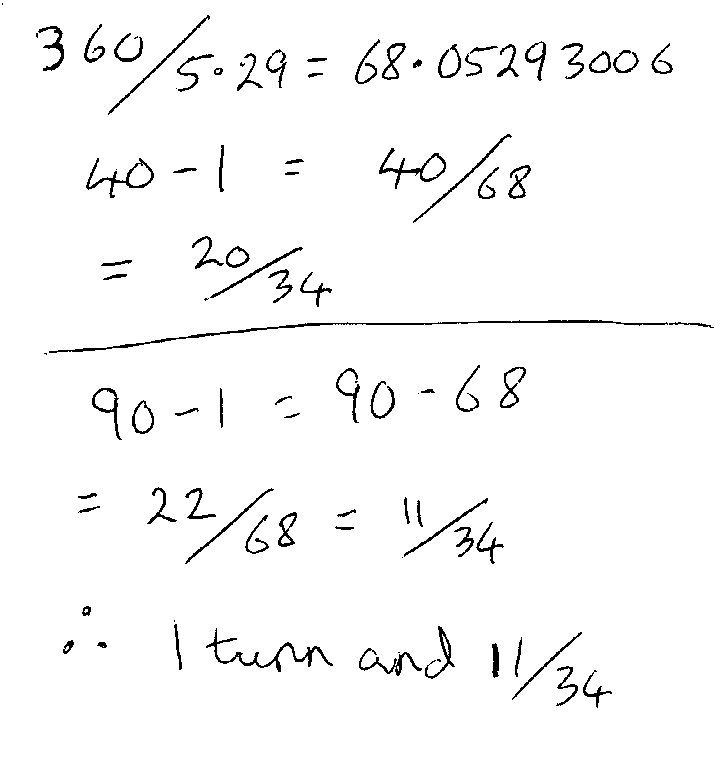 360/5.29 = 68.05293006
40-1 = 40/68
= 20/34
90-1 = 90-68
= 22/68 = 11/34
∴ 1 turn and 11/34